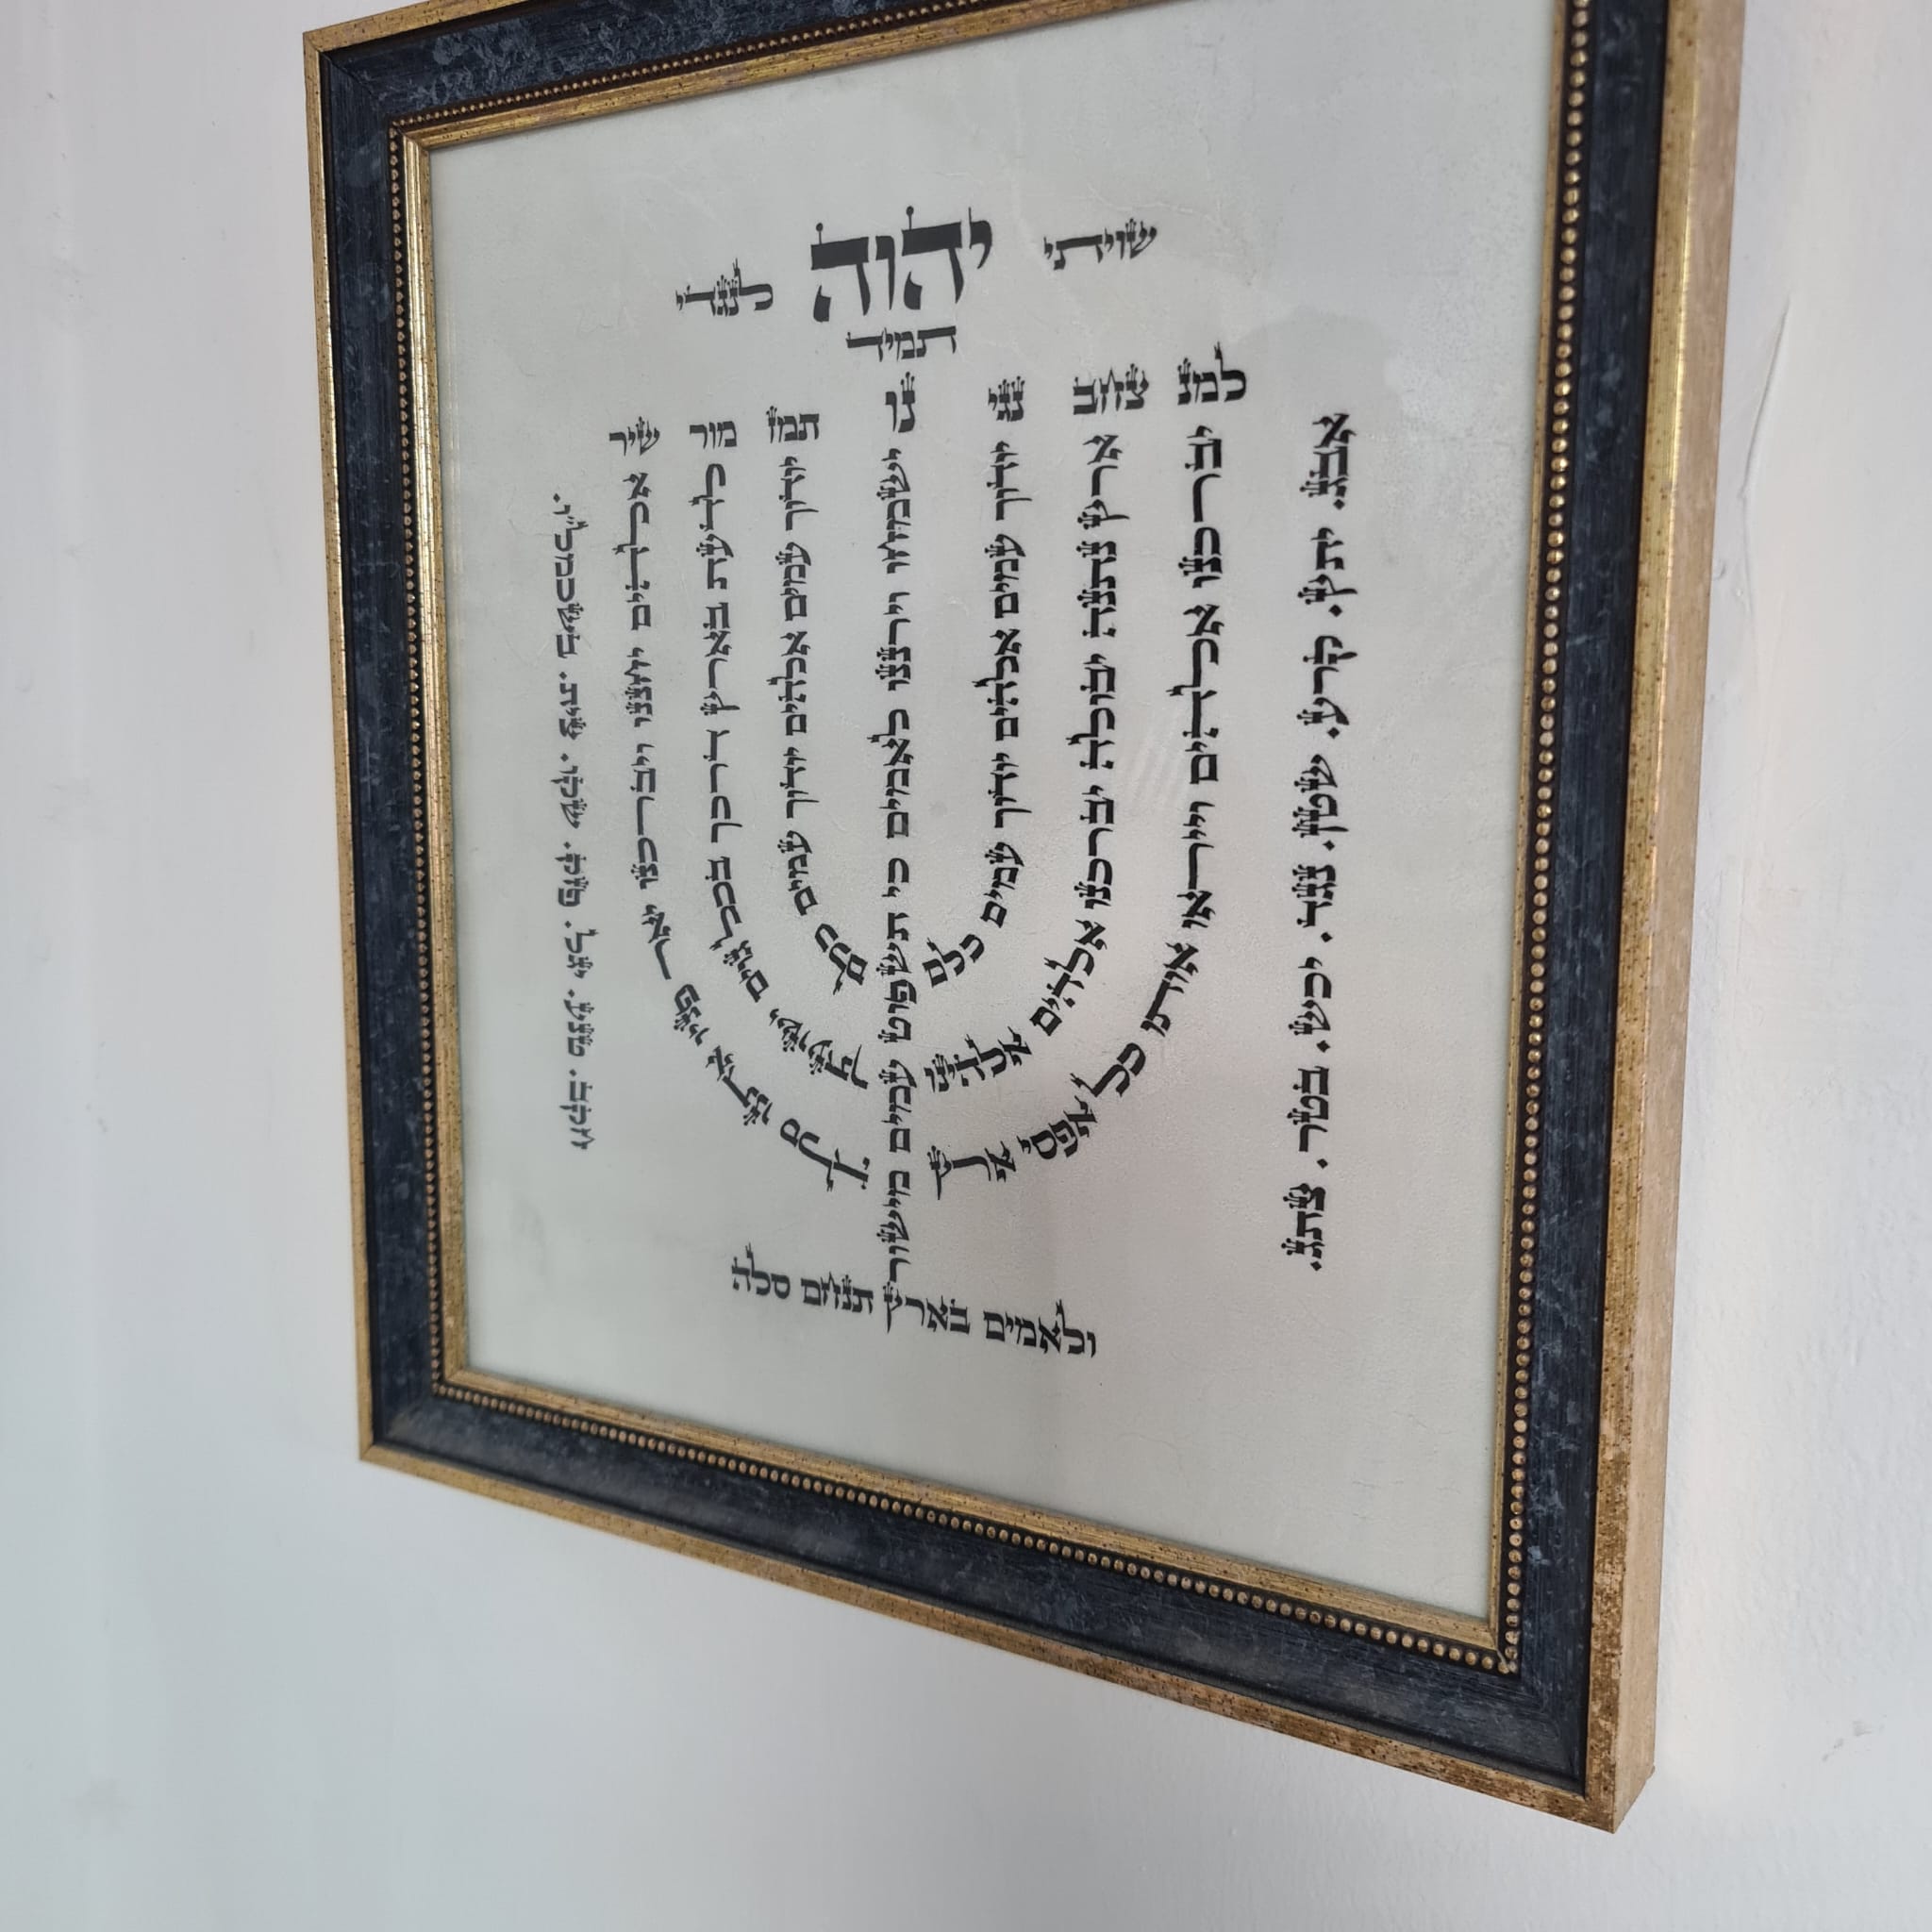 שויתי יהוה לנגדי
תמיד
למנ צחב נגי נו תמז מור שיר
יברכנו אלהים וייראו אותו כל אפסי ארץ
ארץ נתנה יבולה יברכנו אלהים אלהינו
יודוך עמים אלהים יודוך עמים כלם
ישמחו וירננו לאמים כי תשפוט עמים מישור
יודוך עמים אלהים יודוך עמים כלם
לדעת בארץ דרכך בכל גוים ישועתך
אלהים יחננו ויברכנו יאר פניו אתנו סלה
ולאמים בארץ תנחם סלה
אבג. יתץ. קרע. שטן. נגד. יכש. בטר. צתג.
חקב. טנע. יגל. פזק. שקו. צית. בשכמל"ו.